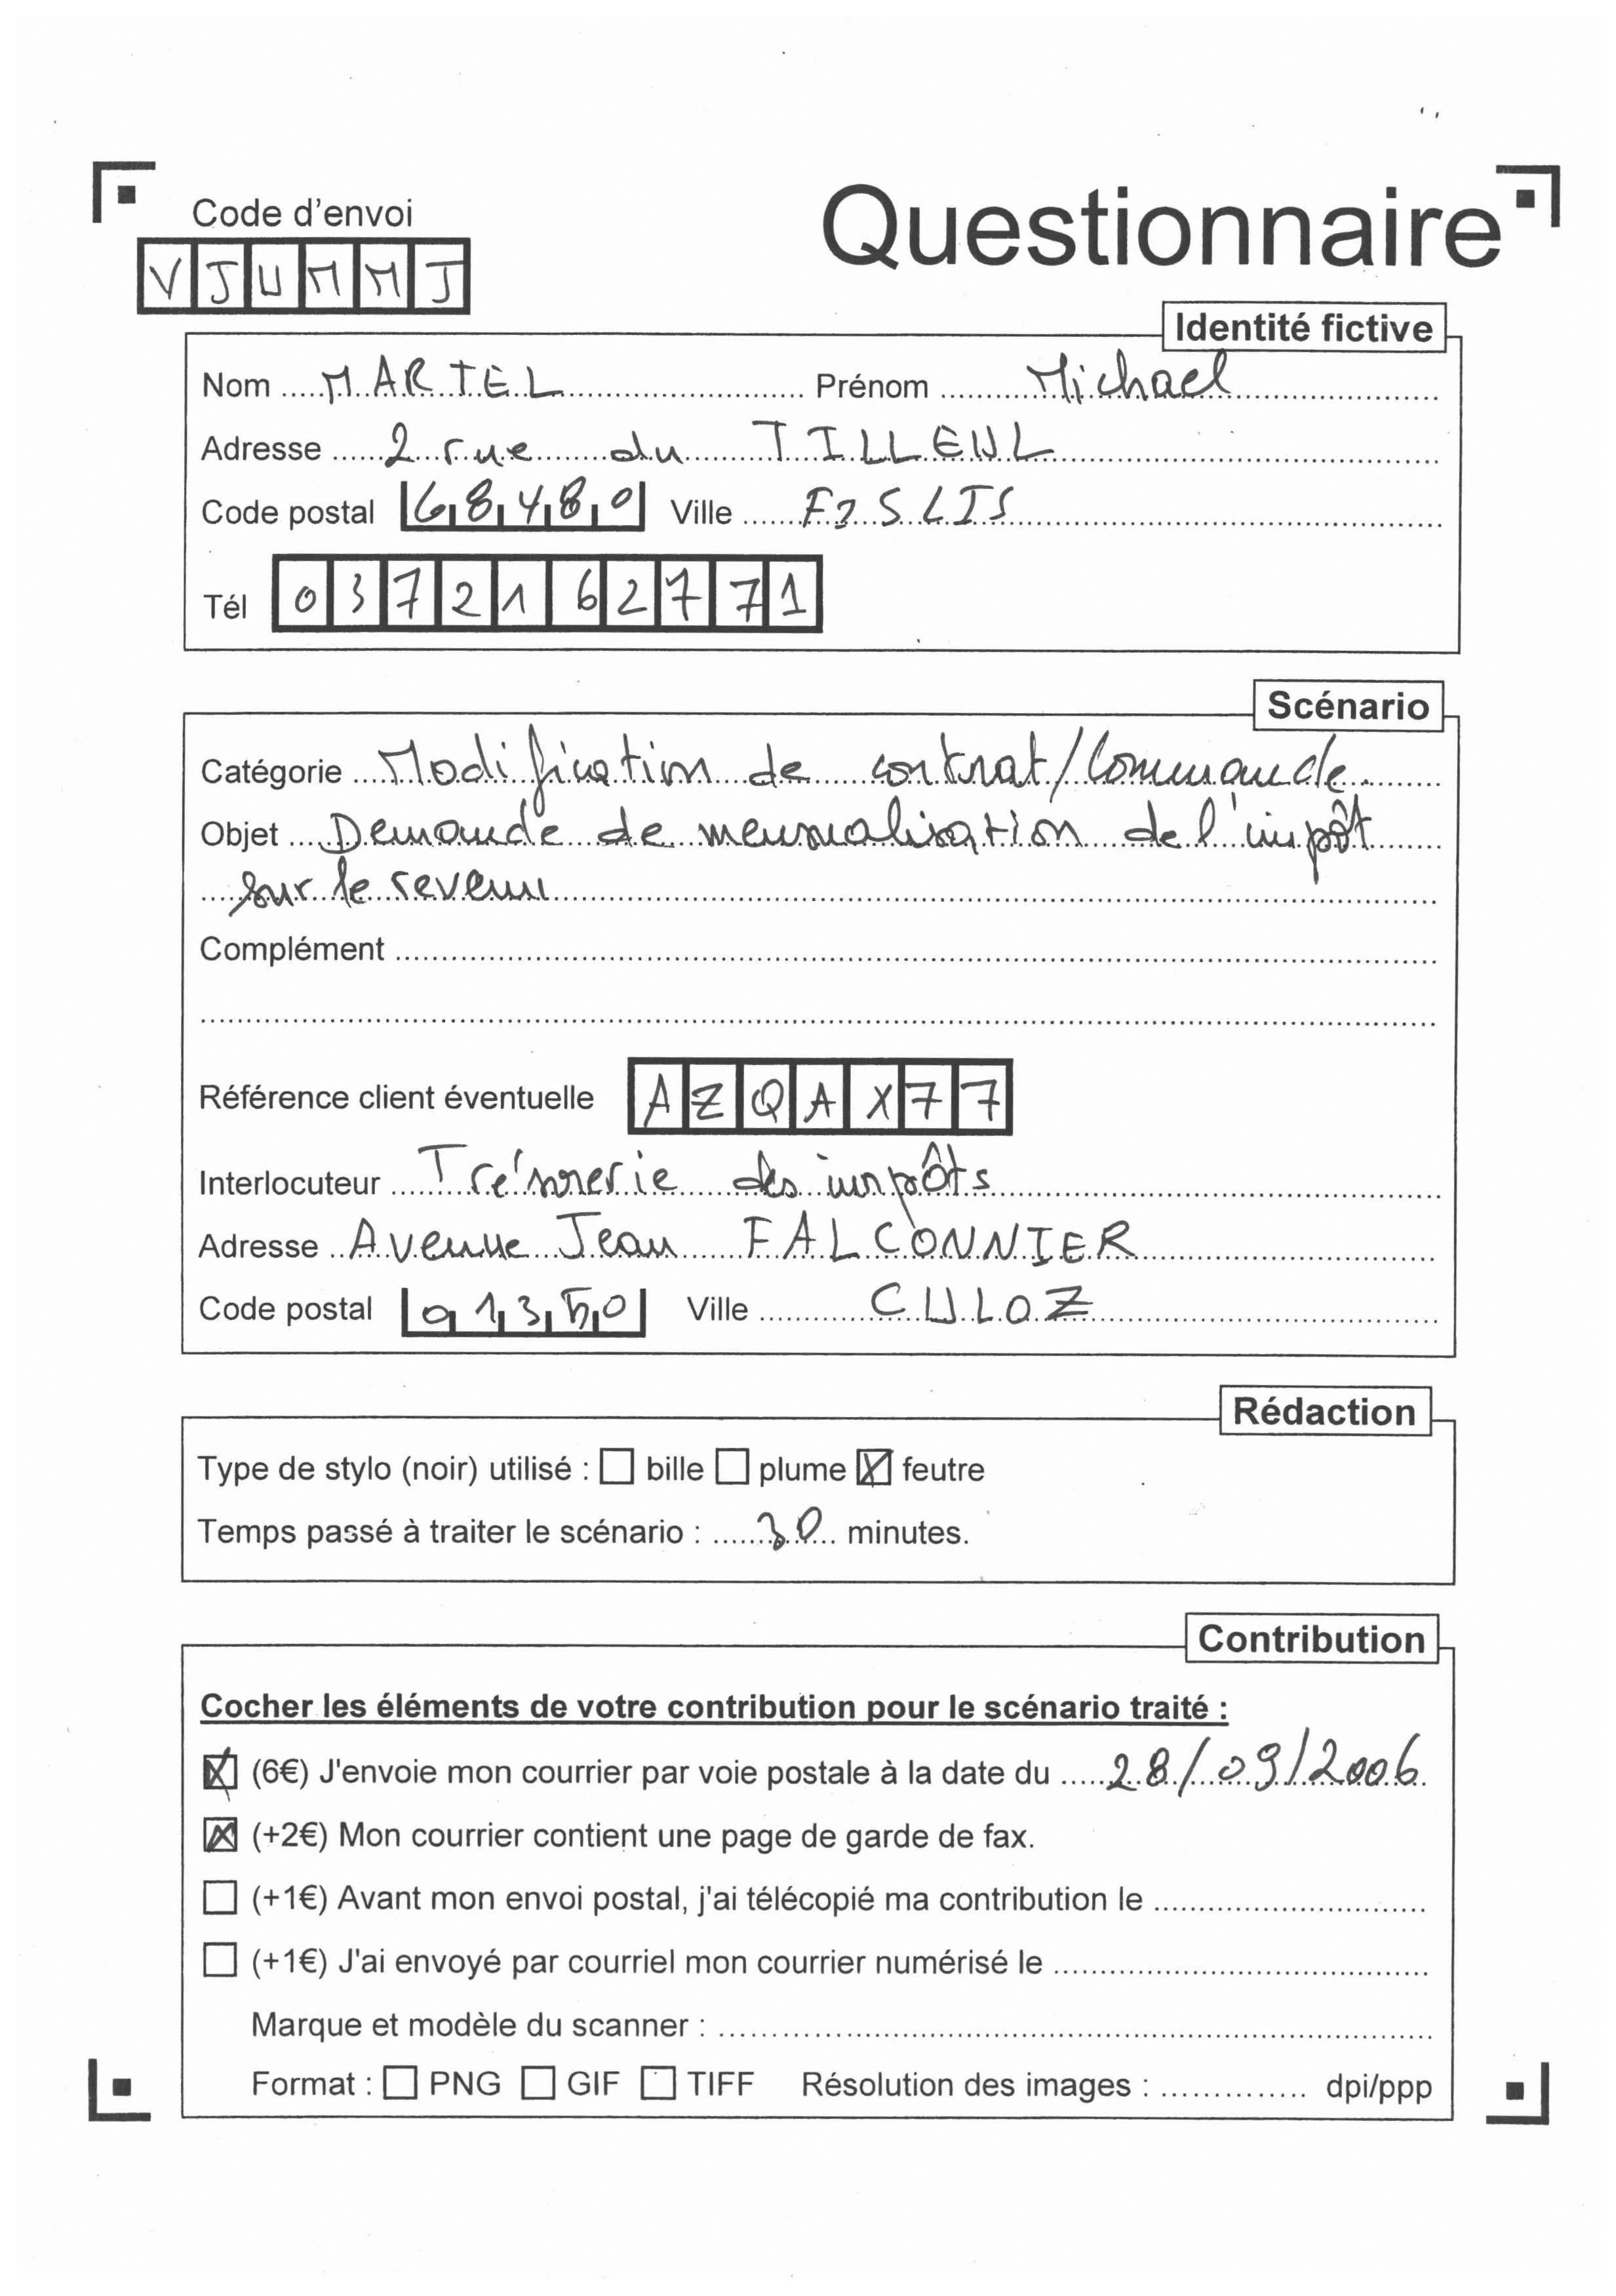 Code d'envoi
Questionnaire
VJUMMJ
Identité fictive
Nom MARTEL Prénom Michael
Adresse 2 rue du TILLEUL
Code postal 68480 Ville FISLIS
Tél 0372162771
Scénario
Catégorie Modification de contrat/Commande
Objet Demande de mensualisation de l'impôt
sur le revenu
Complément
Référence client éventuelle AZQAX77
Interlocuteur Trésorerie des impôts
Adresse Avenue Jean FALCONNIER
Code postal 01350 Ville CULOZ
Rédaction
Type de stylo (noir) utilisé : bille plume feutre
Temps passé à traiter le scénario : 30 minutes.
Contribution
Cocher les éléments de votre contribution pour le scénario traité :
(6€) J'envoie mon courrier par voie postale à la date du 28/09/2006
(+2€) Mon courrier contient une page de garde de fax.
(+1€) Avant mon envoi postal, j'ai télécopié ma contribution le
(+1€) J'ai envoyé par courriel mon courrier numérisé le
Marque et modèle du scanner :
Format : PNG GIF TIFF Résolution des images : dpi/ppp